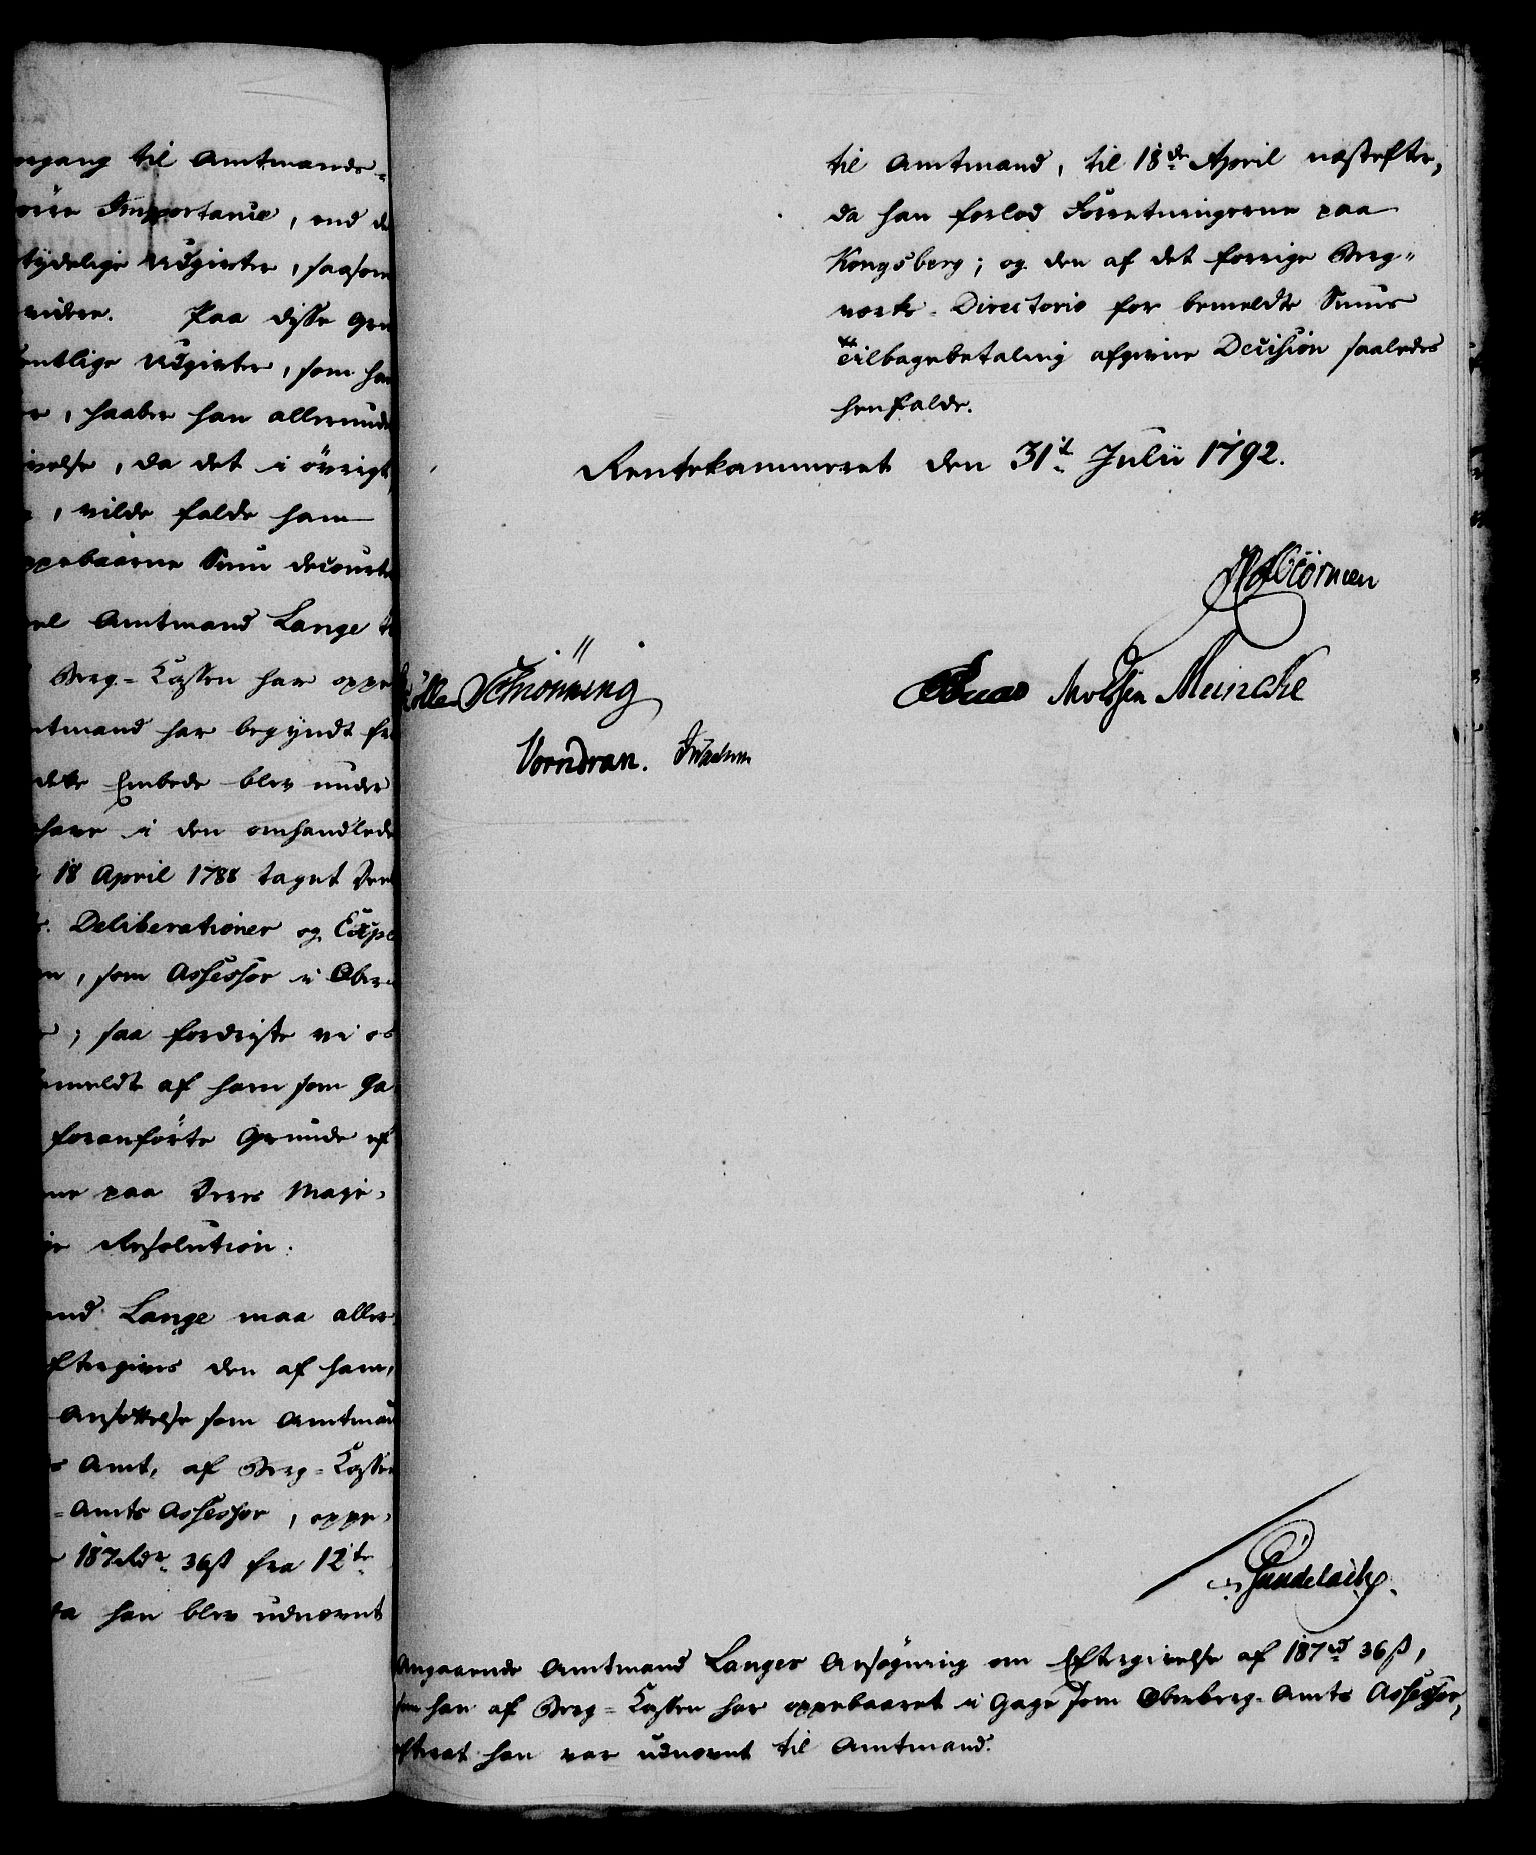 organg til Amtmands-
örre Importance, end de
tydelige Udgivter, saasom
videre. Paa disse Gru
entlige Udgivter, som han
er, haaber han allerunde
ivelse, da det i övrigt,
, vilde falde ham
ppebaarne Sum decourte
vel Amtmand Lange
Berg-Cassen har oppe
mtmand har begyndt fra
dette Embede blev under
have i den omhandlede
18 April 1788 taget Deel
Deliberationer og Expe
en, som Assessor i Ober-
; saa fordriste vi os
bemeldt af ham som Ga
foranförte Grunde ef
ne paa Deres Maje-
Resolution.
and Lange maa aller
eftergives den af ham,
Ansættelse som Amtmand
s Amt, af Berg-Cassen
-Amts Assessor, oppe-
187 Rdr. 36 ß fra 12te
da han blev udnævnt
til Amtmand, til 18de April næstefter,
da han forlod Forretningerne paa
Kongsberg; og den af det forrige Berg-
værks-Directorio for bemeldte Sums
Tilbagebetaling afgivne Decision saaledes
henfalde.
Rentekammeret den 31te Julii 1792.
Schiönning
Meincke
Vorndran.
Gundelach.
Angaaende Amtmand Langes Ansøgning om Eftergivelse af 187 rd 36 ß,
som han af Berg-Cassen har oppebaaret i Gage som Oberberg-Amts Assessor,
efterat han var udnævnt til Amtmand.